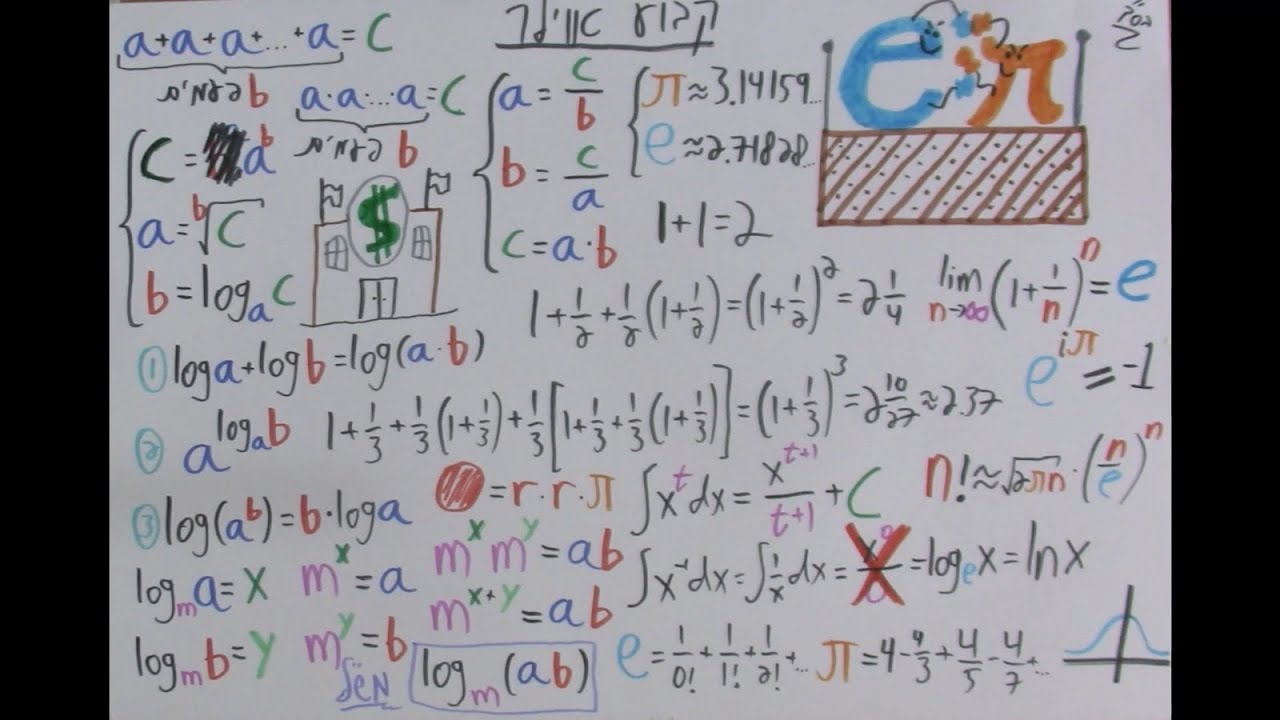 a+a+a+...+a=C
b פעמים
a·a·...·a=C
b פעמים
C=a^b
a=ᵇ√C
b=logₐC
קבוע אוילר
a=c/b
b=c/a
c=a·b
π≈3.14159...
e≈2.71828...
e π
$
1+1=2
1+1/2+1/2(1+1/2)=(1+1/2)²=2 1/4
lim n→∞ (1+1/n)^n=e
① loga+logb=log(a·b)
e^{iπ}=-1
② a^{logₐb}
1+1/3+1/3(1+1/3)+1/3[1+1/3+1/3(1+1/3)]=(1+1/3)³=2 10/27≈2.37
③ log(a^b)=b·loga
=r·r·π
∫x^t dx=x^{t+1}/t+1+C
n!≈√2πn·(n/e)^n
logₘa=x m^x=a m^x m^y=ab
∫x⁻¹dx=∫1/x dx=x⁰/0=logₑx=lnx
logₘb=y m^y=b m^{x+y}=ab
logₘ(ab)
e=1/0!+1/1!+1/2!+...
π=4-4/3+4/5-4/7+...